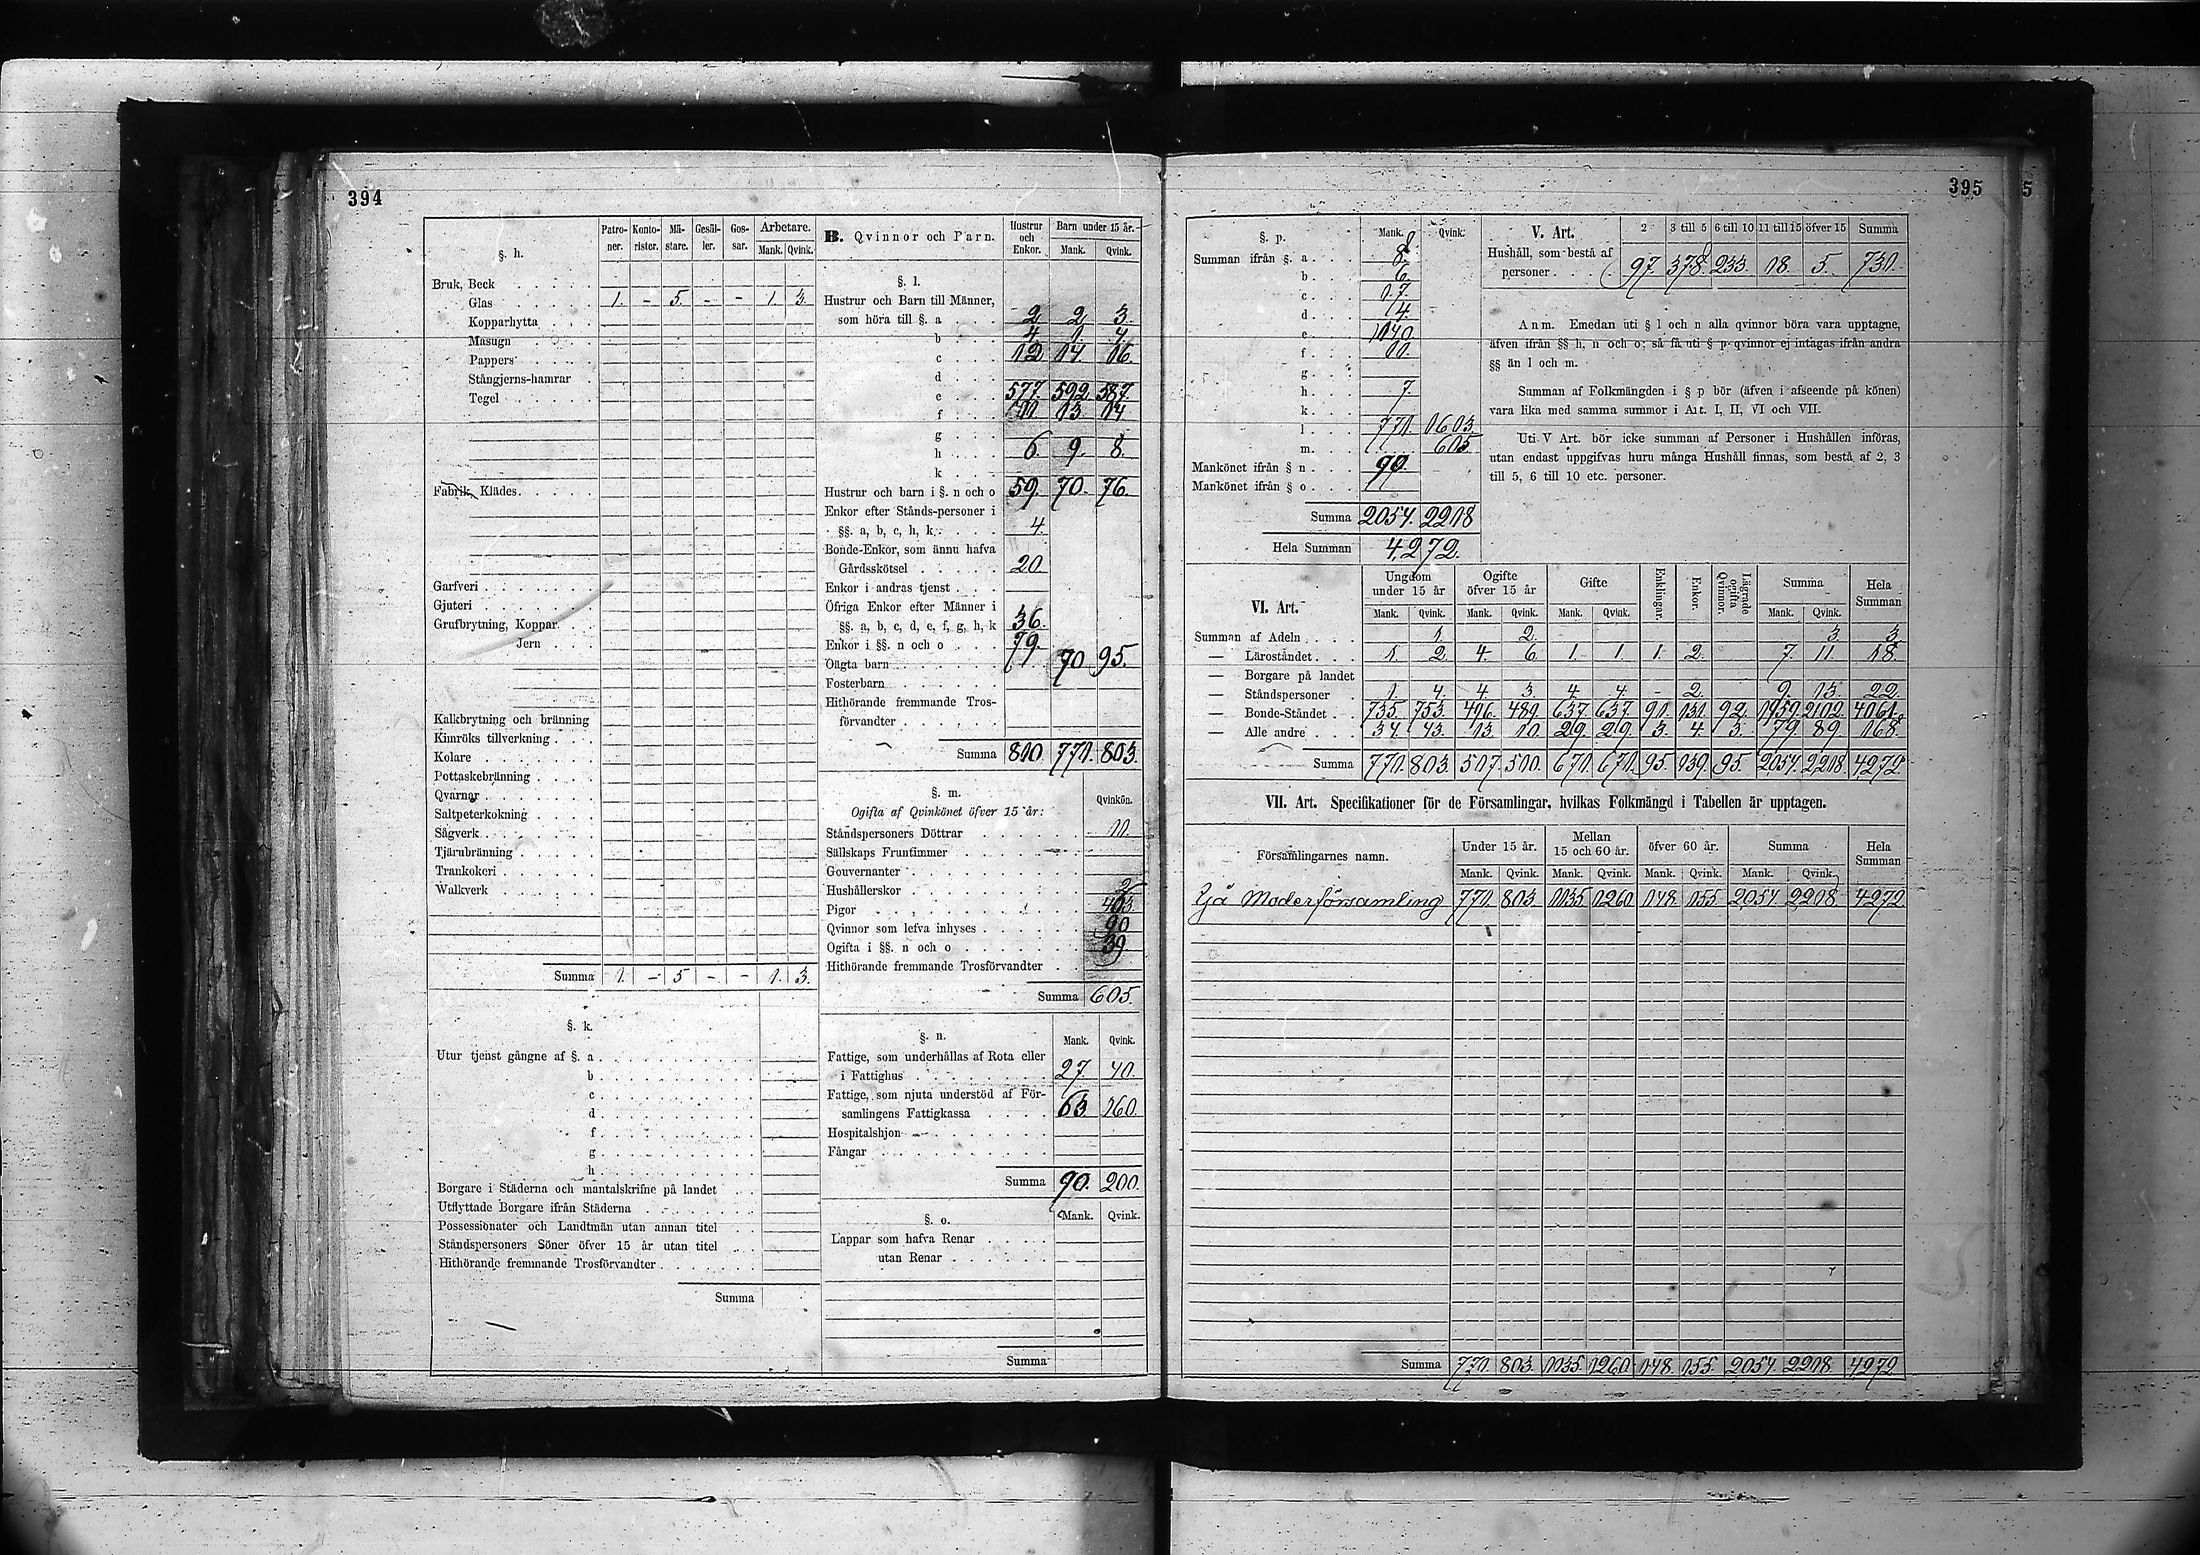 394
§. h. Patroner. Kontorister. Mästare. Gesäller. Gossar. Arbetare. Mank. Qvink.
Bruk, Beck
Glas 1. – 5. – – 1. 3.
Kopparhytta
Masugn
Pappers
Stångjerns-hamrar
Tegel
Fabrik, Klädes
Garfveri
Gjuteri
Grufbrytning, Koppar
Jern
Kalkbrytning och bränning
Kimröks tillverkning
Kolare
Pottaskebränning
Qvarnar
Saltpeterkokning
Sågverk
Tjärubränning
Trankokeri
Walkverk
Summa 1. – 5 – – 1. 3.
§. k.
Utur tjenst gångne af §. a
b
c
d
f
g
h
Borgare i Städerna och mantalskrifne på landet
Utflyttade Borgare ifrån Städerna
Possessionater och Landtmän utan annan titel
Ståndspersoners Söner öfver 15 år utan titel
Hithörande fremmande Trosförvandter
Summa
B. Qvinnor och Barn. Hustrur och Enkor. Barn under 15 år. Mank. Qvink.
§. l.
Hustrur och Barn till Männer,
som höra till §. a 2 2 3.
b 4 1 4.
c 12 14 16.
d
e 577. 592 587.
f 11 13 14
g
h 6. 9. 8.
k
Hustrur och barn i §. n och o 59. 70. 76.
Enkor efter Stånds-personer i
§§. a, b, c, h, k 4.
Bonde-Enkor, som ännu hafva
Gårdsskötsel 20.
Enkor i andras tjenst
Öfriga Enkor efter Männer i
§§. a, b, c, d, e, f, g, h, k 36.
Enkor i §§. n och o 79.
Oägta barn 70 95.
Fosterbarn
Hithörande fremmande Trosförvandter
Summa 810. 771. 803.
§. m.
Ogifta af Qvinkönet öfver 15 år: Qvinkön.
Ståndspersoners Döttrar 11.
Sällskaps Fruntimmer
Gouvernanter
Hushållerskor 2
Pigor
Qvinnor som lefva inhyses 90
Ogifta i §§. n och o
Hithörande fremmande Trosförvandter
Summa 605.
§. n. Mank. Qvink.
Fattige, som underhållas af Rota eller
i Fattighus 27. 40.
Fattige, som njuta understöd af Församlingens Fattigkassa 63. 160.
Hospitalshjon
Fångar
Summa 90. 200.
§. o. Mank. Qvink.
Lappar som hafva Renar
utan Renar
Summa
395
5
§. p. Mank. Qvink.
Summan ifrån §. a 8.
b 6.
c 17.
d 4.
e 1140.
f 11.
g
h 7.
k
l 771. 1603.
m 605
Mankönet ifrån § n 90.
Mankönet ifrån § o
Summa 2054. 2218
Hela Summan 4,272.
V. Art. 2 3 till 5 6 till 10 11 till 15 öfver 15 Summa
Hushåll, som bestå af
personer 97. 378. 233. 18. 5. 731.
Anm. Emedan uti § l och n alla qvinnor böra vara upptagne,
äfven ifrån §§ h, n och o; så få uti § p qvinnor ej intagas ifrån andra
§§ än l och m.
Summan af Folkmängden i § p bör (äfven i afseende på könen)
vara lika med samma summor i Art. I, II, VI och VII.
Uti V Art. bör icke summan af Personer i Hushållen införas,
utan endast uppgifvas huru många Hushåll finnas, som bestå af 2, 3
till 5, 6 till 10 etc. personer.
VI. Art. Ungdom under 15 år Ogifte öfver 15 år Gifte Enklingar. Enkor. Lägrade ogifta Qvinnor. Summa Hela Summan
Mank. Qvink. Mank. Qvink. Mank. Qvink. Mank. Qvink.
Summan af Adeln 1. 2. 3. 3.
— Läroståndet 1. 2. 4. 6. 1. 1. 1. 2. 7. 11. 18.
— Borgare på landet
— Ståndspersoner 1. 4. 4. 3. 4. 4. – 2. 9. 13. 22.
— Bonde-Ståndet 735. 753. 496. 489. 637. 637. 91. 131. 92. 1959. 2102. 4061.
— Alle andre 34. 43. 13. 10. 29. 29. 3. 4. 3. 79. 89. 168.
Summa 771. 803. 517. 510. 671. 671. 95. 139. 95. 2054. 2218. 4272
VII. Art. Specifikationer för de Församlingar, hvilkas Folkmängd i Tabellen är upptagen.
Församlingarnes namn. Under 15 år. Mellan 15 och 60 år. öfver 60 år. Summa Hela Summan
Mank. Qvink. Mank. Qvink. Mank. Qvink. Mank. Qvink.
Moderförsamling 771. 803. 1135 1260. 148. 155. 2054. 2218. 4272
Summa 771. 803. 1135 1260. 148. 155. 2054. 2218. 4272